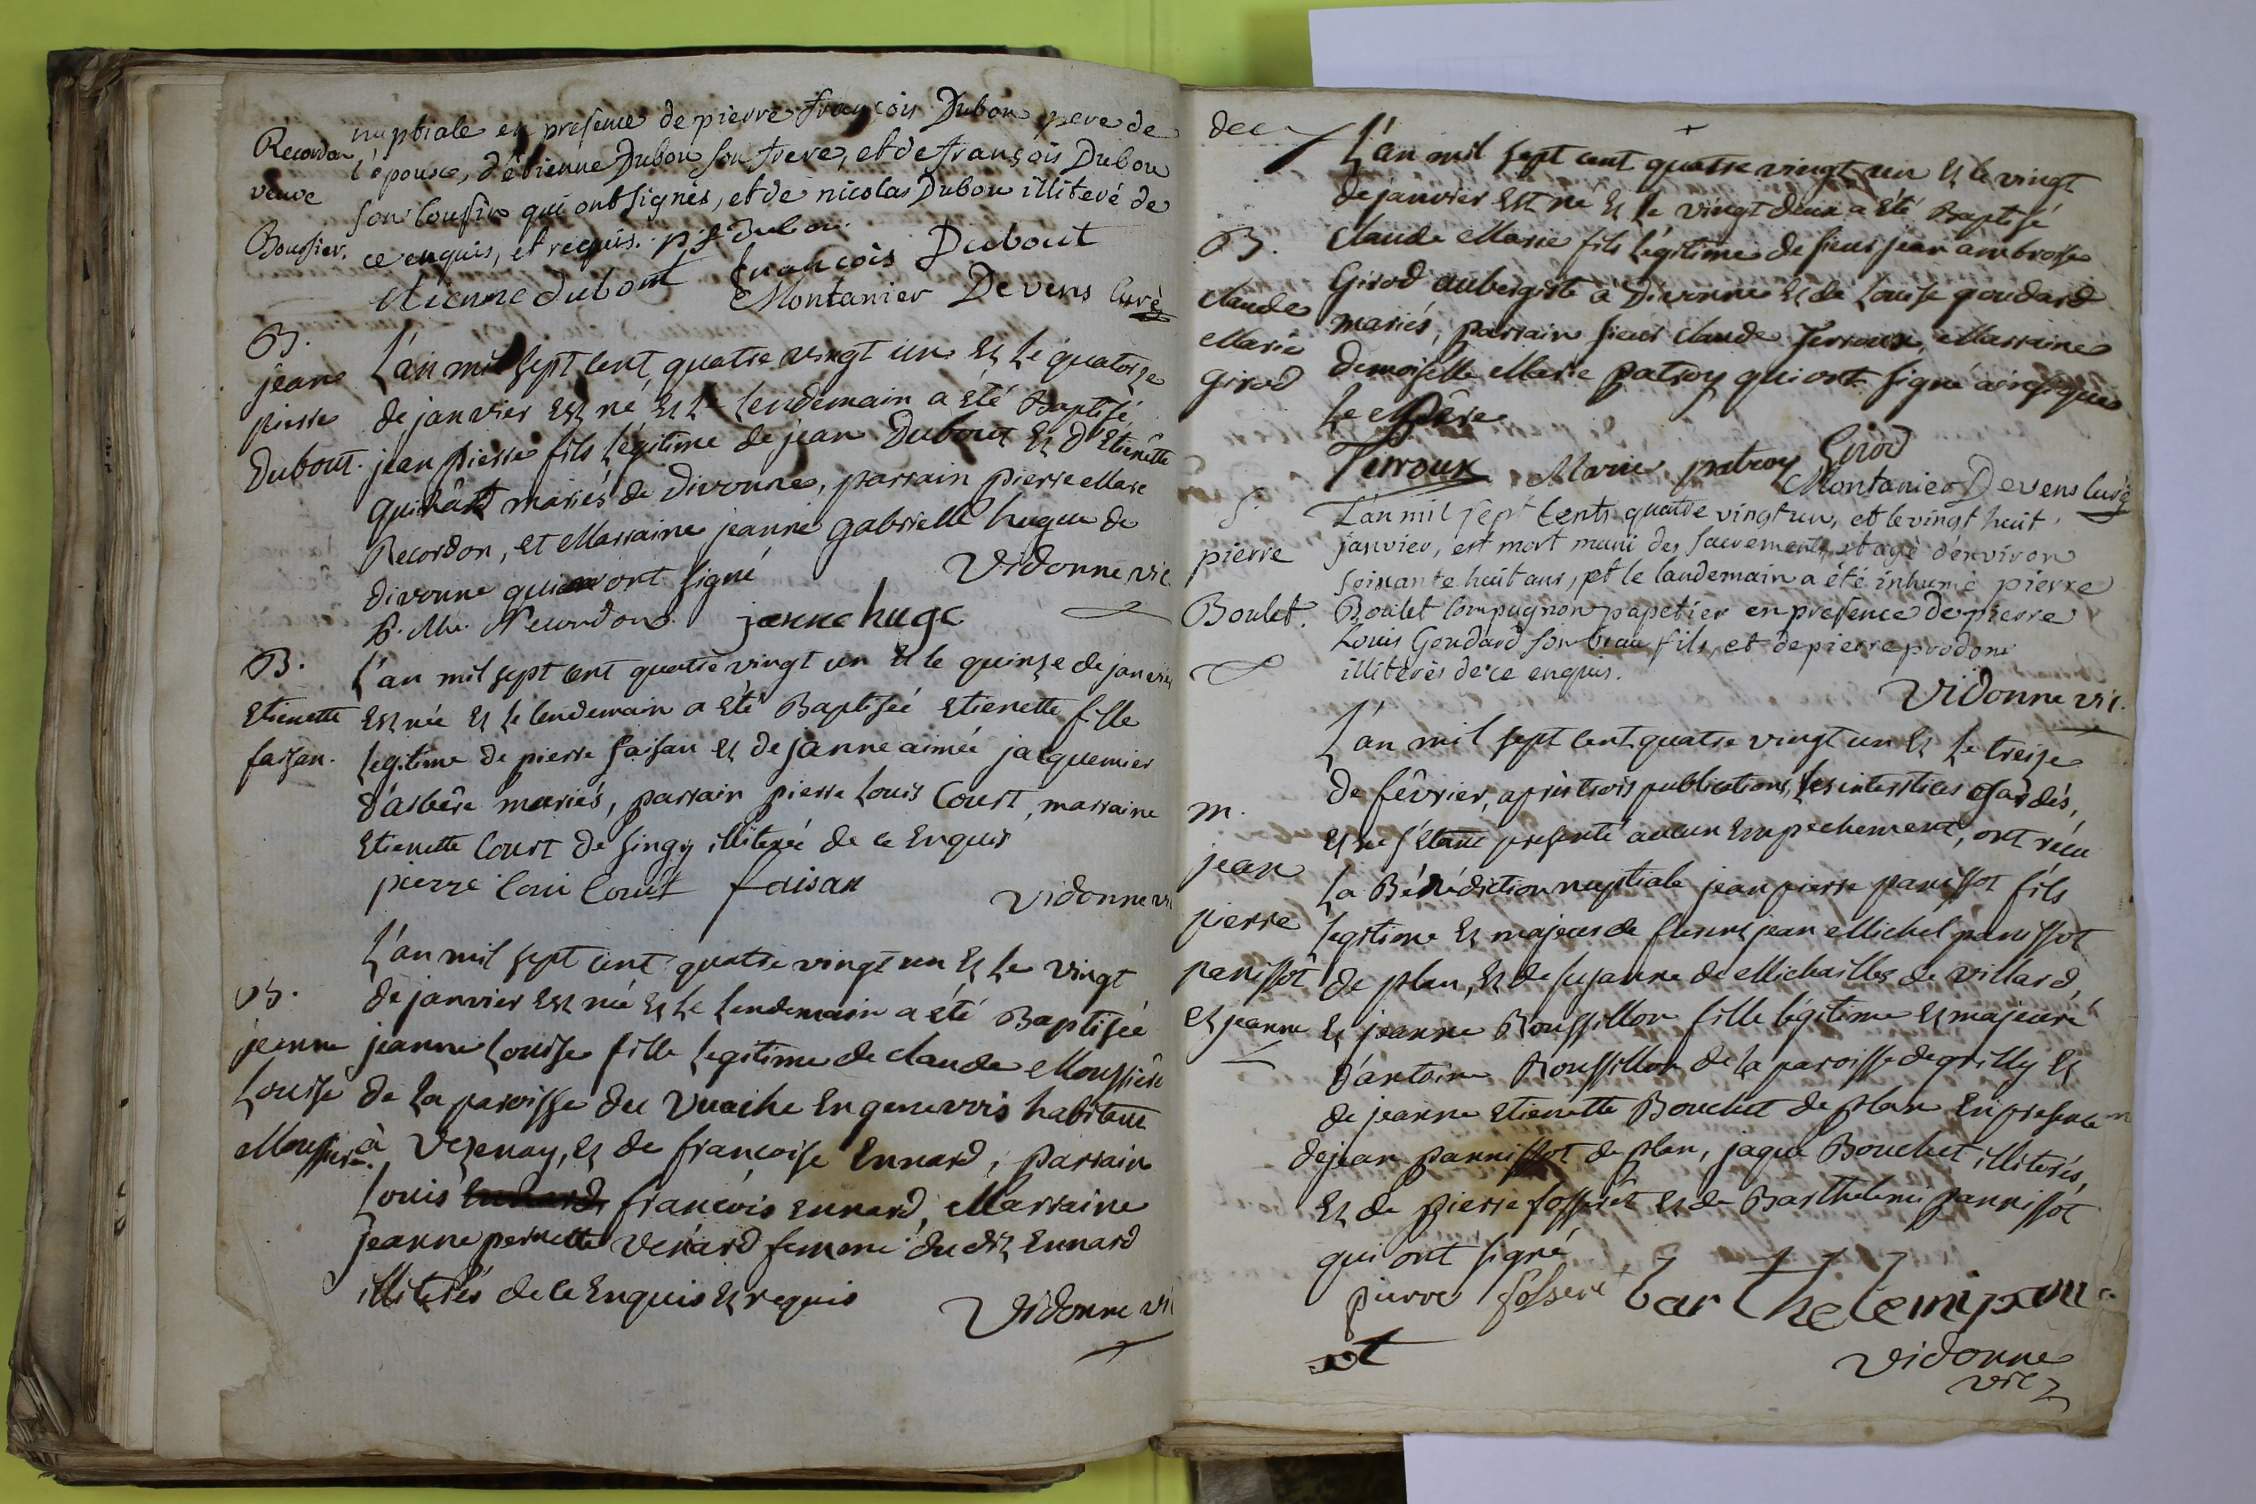 Recordon
veuve
Boussier.
nuptiale en presence de pierre françois Dubou pere de
l'épouse, d'étienne Dubou son frere, et de françois Dubou
son cousin qui ont signés, et de nicolas Dubou illiteré de
ce enquis, et requis. p f dubou.
etienne dubout françois Dubout
Montanier Devens Curé
B.
jean
pierre
Dubout.
L'an mil sept cent quatre vingt un et le quatorze
de janvier est né et le lendemain a été Baptisé
jean pierre fils légitime de jean Dubout et d'Etienette
mariés de Divonne, parrain pierre Marc
Recordon, et Marraine jeanne gabrielle hugue de
divonne qui ont signé
Vidonne vic.
P. M. Recordon. janne huge
B.
Etienette
faisan.
L'an mil sept cent quatre vingt un et le quinze de janvier
est née et le lendemain a été Baptisée Etienette fille
legitime de pierre faisan et de janne aimée jacquemier
d'arbère mariés, parrain pierre Louis Court, marraine
Etienette Court de singy illiterée de ce Enquis
pierre loui Court faisan
Vidonne vi
B.
jeanne
Louise
Moussiere.
L'an mil sept cent quatre vingt un et le vingt
de janvier est née et le lendemain a été Baptisée
jeanne Louise fille legitime de claude Moussiere
de la paroisse du Vuache en genevois habitant
à Vezenay, et de françoise Ennard, parrain
Louis françois Ennard, Marraine
jeanne pernette Venard femme du dit Ennard
illiterés de ce Enquis et requis
Vidonne vi
dec
B.
Claude
Marie
girod
L'an mil sept cent quatre vingt un et le vingt
de janvier est né et le vingt deux a été Baptisé
Claude Marie fils légitime de sieur jean ambroise
Girod aubergiste à Divonne et de Louise goudard
mariés, parrain sieur Claude Terroux, Marraine
demoiselle Marie patroy qui ont signé ainsi que
le Père
Terroux Marie patroy Girod
Montanier Devens Curé
S.
pierre
Boulet.
L'an mil sept cents quatre vingt un, et le vingt huit
janvier, est mort muni des sacrements, et agé d'environ
soixante huit ans, et le landemain a été inhumé pierre
Boulet compagnon papetier en presence de pierre
Louis Goudard son beau fils, et de pierre prodon
illiterés de ce enquis.
Vidonne vic.
m.
jean
pierre
panissot
et jeanne
L'an mil sept cent quatre vingt un et le treize
de février, après trois publications, les interstices gardés,
et ne s'étant presenté aucun Empechement, ont réçu
la Bénédiction nuptiale jean pierre panissot fils
legitime et majeur de jean Michel panissot
de plan, et de suzanne de Michailles de villard,
et jeanne Roussillon fille légitime et majeure
d'antoine Roussillon de la paroisse de grilly et
de jeanne Etienette Bouchet de plan en presence
de jean pannissot de plan, jaque Bouchet illiterés,
et de pierre fosseret et de Barthelemi pannissot
qui ont signé
pierre fosseret barthelemi pani
ot
Vidonne
vic